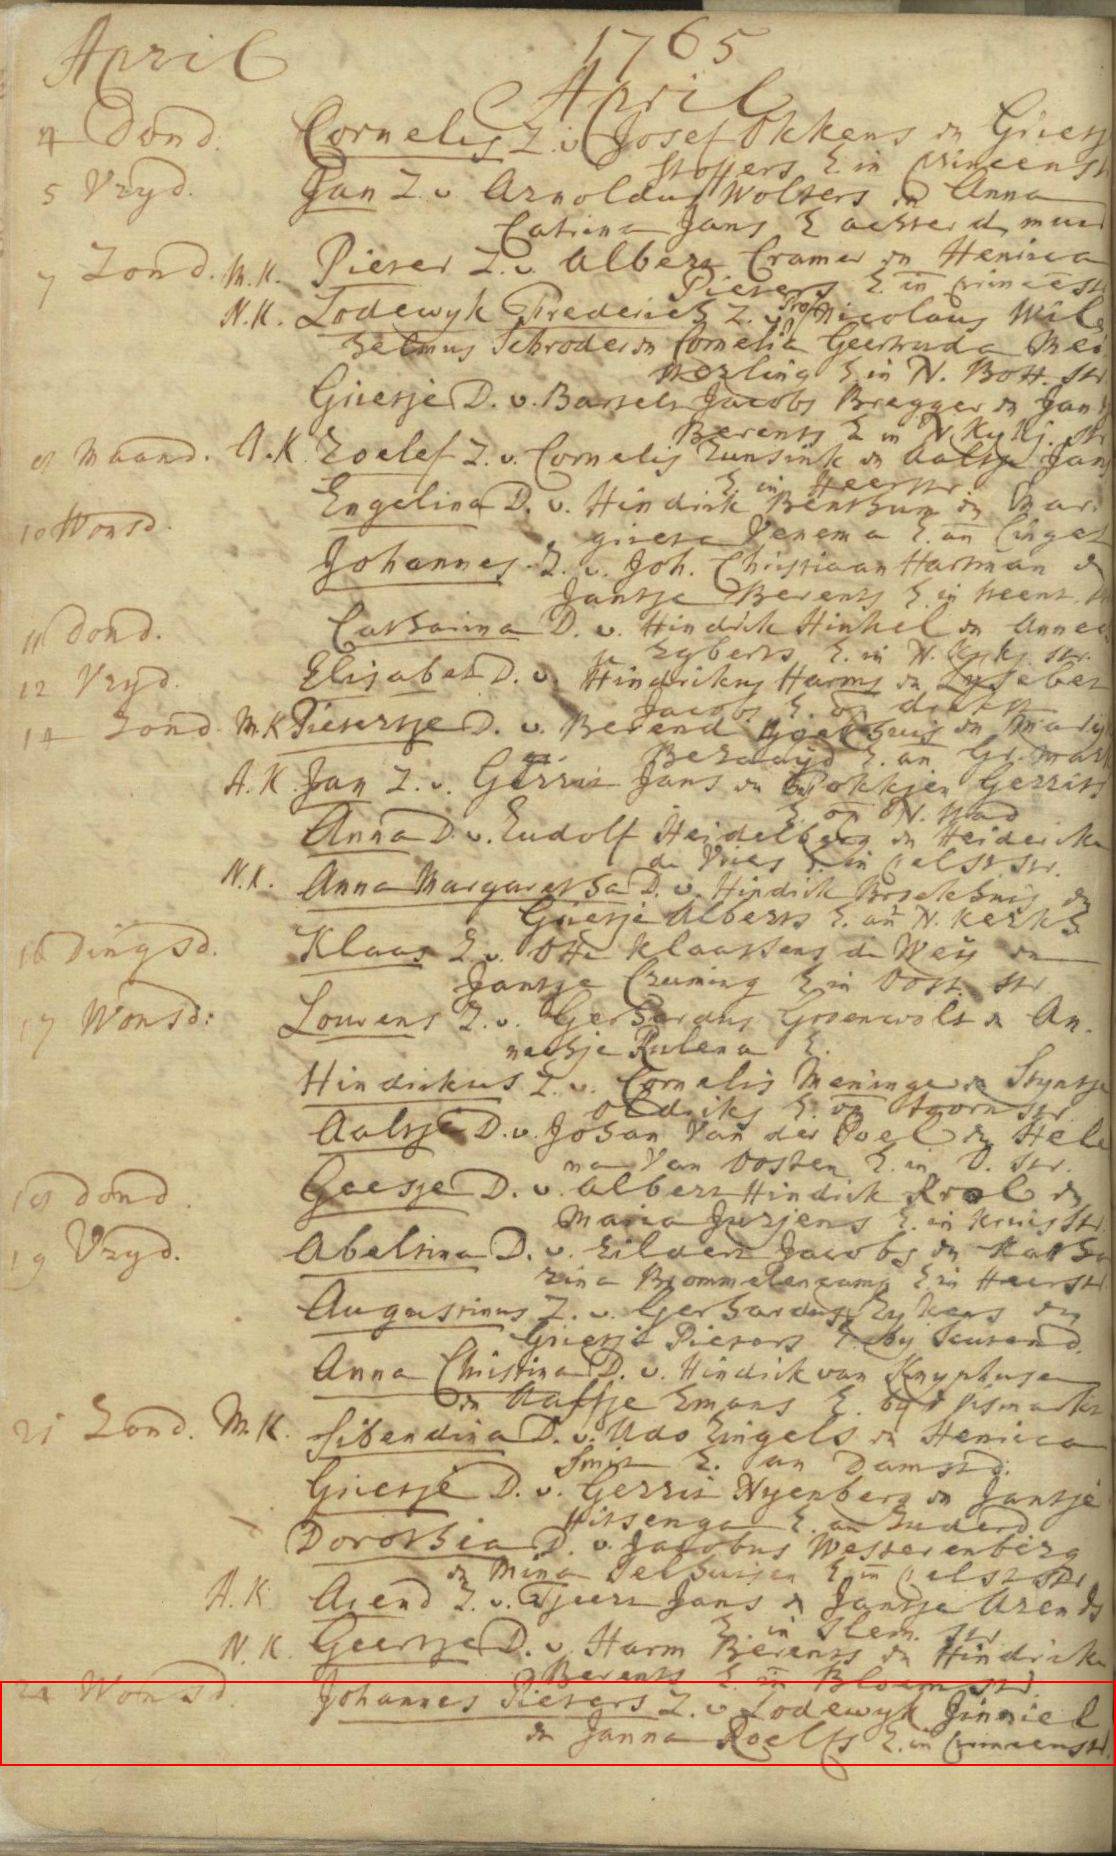 April 1765
April
4 Dond. Cornelis Z. v. Josef Okkens en Grietj
Stoffers E. in Princenst
5 Vryd. Jan Z. v. Arnoldus Wolters en Anna
Catrina Jans E achter d muur
7 Zond. M.K. Pieter Z. v. Albert Cramer en Henrica
Pieters E. in princest
N.K. Lodewyk Frederick Z. v. Prof Nicolaus Wil
helmus Schroder en Cornelia Geertruda Mei
merling E in N. Bott. str
Grietje D. v. Bartelt Jacobs Bregger en Jan
Berents E in N. Kykj. str
8 Maand. A.K. Roelef Z. v. Cornelis Eunsink en Aaltje Jans
E. in Heerstr
Engelina D. v. Hindrik Benthum en Mar
grieta Venema E. an Cingel
10 Wonsd. Johannes Z. v. Joh. Christiaan Hartman en
Jantje Berents E. in Weent.
11 Dond. Catharina D. v. Hindrik Hinkel en Anne
Egberts E. in N. Kykj. str.
12 Vryd. Elisabet D. v. Hindrikus Harms en Lysebet
Jacobs E. op
14 Zond. M.K. Pietertje D. v. Berend en
E. an Gr. Mark
A.K. Jan Z. v. Gerrit Jans en Pokkjen Gerrits
E. op N. stad
Anna D. v. Rudolf Heidelberg en Heidericka
de Vries E. in pelsstr.
N.K. Anna Margaretha D. v. Hindrik Broekhuis en
Grietje Alberts E. an N. Kerkh
16 Dingsd. Klaas Z. v. Otto Klaassens de Weij en
Jantje Cruning E in Oost. str.
17 Wonsd: Lourens Z. v. Gerhardus Gosenwolt en An.
naetje Rulena E.
Hindrikus Z. v. Cornelis Meninga en Styntje
Oldriks E. op Hoornstr
Aaltje D. v. Johan Van der Poel en Hele
na Van Oosten E. in O. Str.
18 Dond. Geesje D. v. Albert Hindrik Krol en
Maria Jurjens E. in Kruisstr
19 Vryd. Abeltina D. v. Eildert Jacobs en Katha
rina Brommelencamp E in Heerstr
Augustinus Z. v. Gerhardus Eykens en
Grietje Pieters E. by
Anna Christina D. v. Hindrik van Knyphusen
en Aafje Emans E. by
21 Zond. M.K. Sibendina D. v. Udo Engels en Henrica
Smit E. an Damstd:
Grietje D. v. Gerrit Nyenberg en Jantje
Hitsenga E. an Zuderd
Dorothea D. v. Jacobus Westerenberg
en Mina Velthuisen E in pelsstr
A.K. Arend Z. v. Tjeert Jans en Jantje Arends
E. in Slem. str
N.K. Geertje D. v. Harm Berents en Hindrika
Berents E. in Bloemstr.
24 Wonsd. Johannes Pieters Z. v. Lodewyk Jinniel
en Janna Roelfs E. in princenstr.